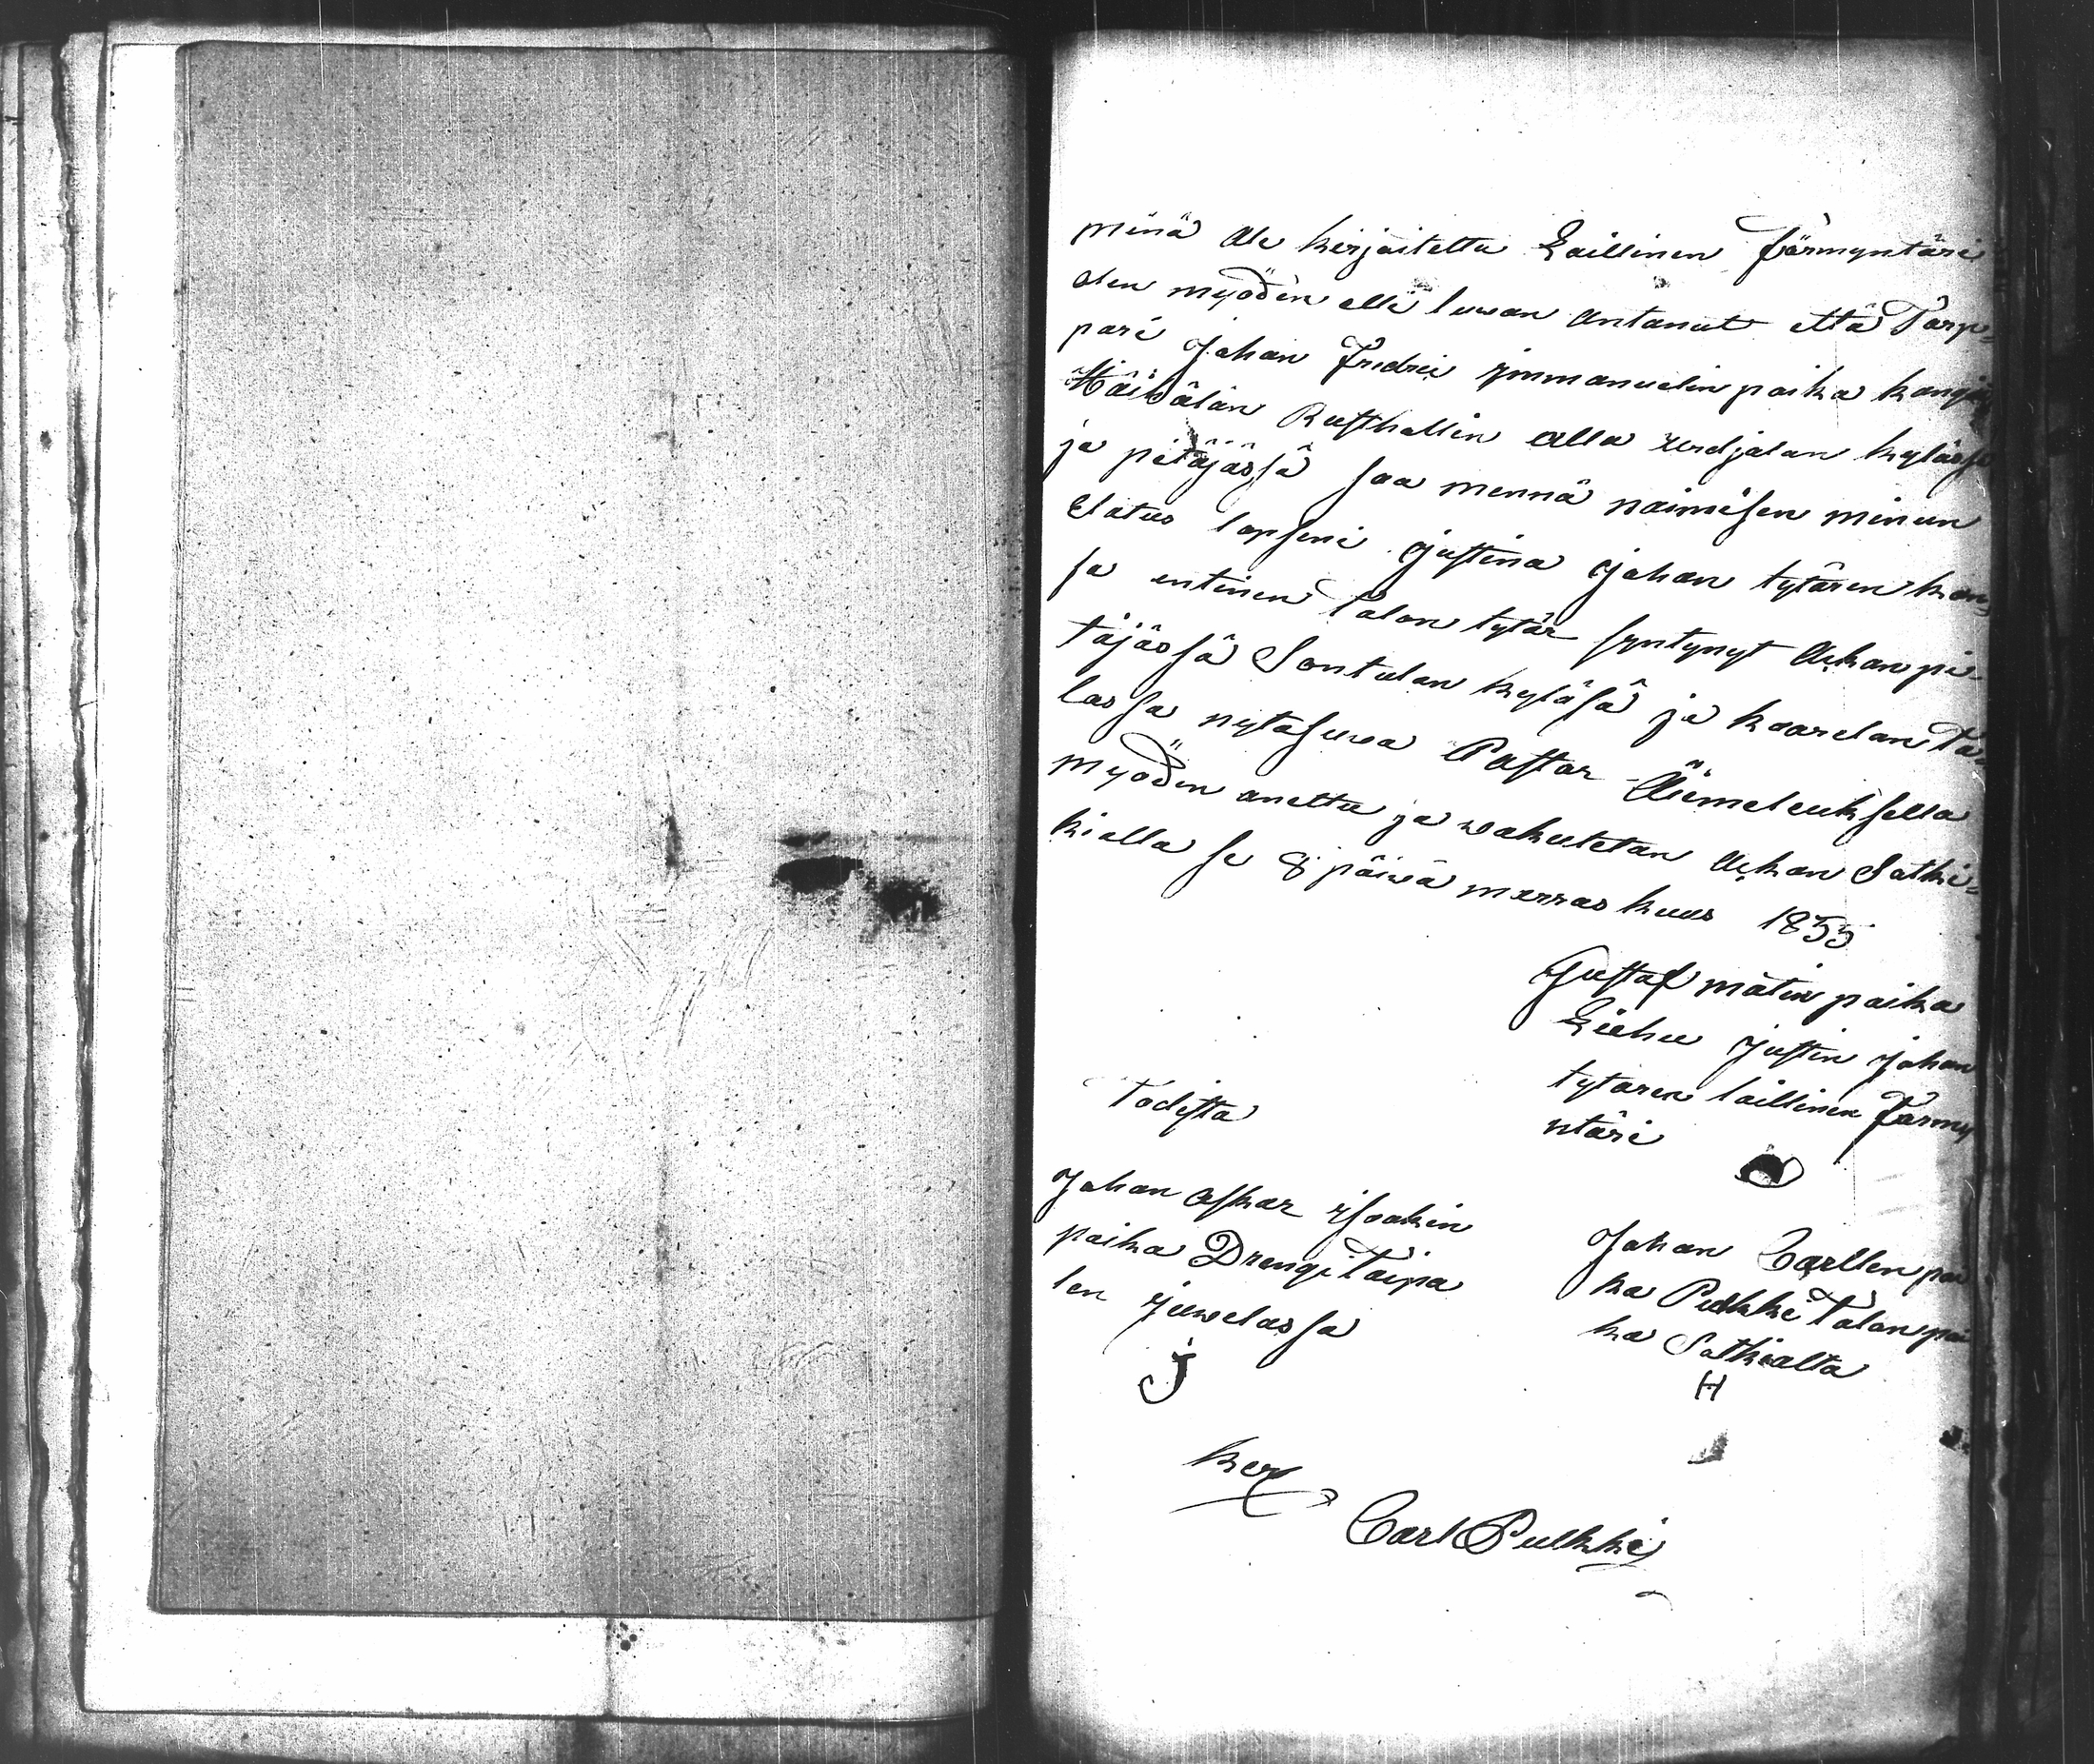 minä ale kirjoitettu Laillinen Förmyntäri
olen myöden elli luwan antanut että Torp=
pari Johan Fredri ymmanuelin poika
Häihälän Rusthallin alla urdjalan kyläss
ja pitäjässä saa mennä naimisen minun
Elatus lapseni Justina Johan tytären kan=
sa entinen talon tytär syntynyt Ackan pi=
täjässä Sontulan kyläsä ja kaarelan Ta
lossa nytasuwa Pastor Äimeleuksella
myöden anettu ja wakutetan Ackan Satki=
kialla se 8 päiwä marras kuus 1855
Gustaf mätin poika
Liehu Justin Johan
tytären laillinen Förmy
ntäri
Todista
Johan Oskar ysoakin
poika Drengi Taipa
len Juwelassa
J
Johan Carllen poi
ka Pulkki Talon poi
ka Satkialta
H
Carl Pulkki